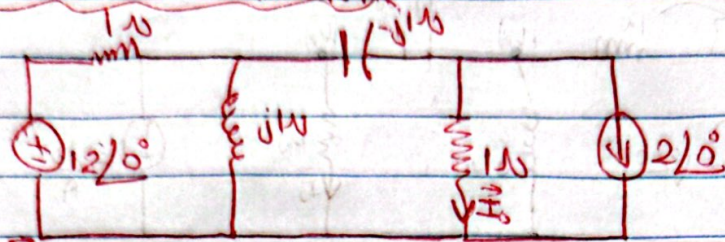 1Ω
-j1Ω
12∠0°
j1Ω
1Ω
I₀
2∠0°